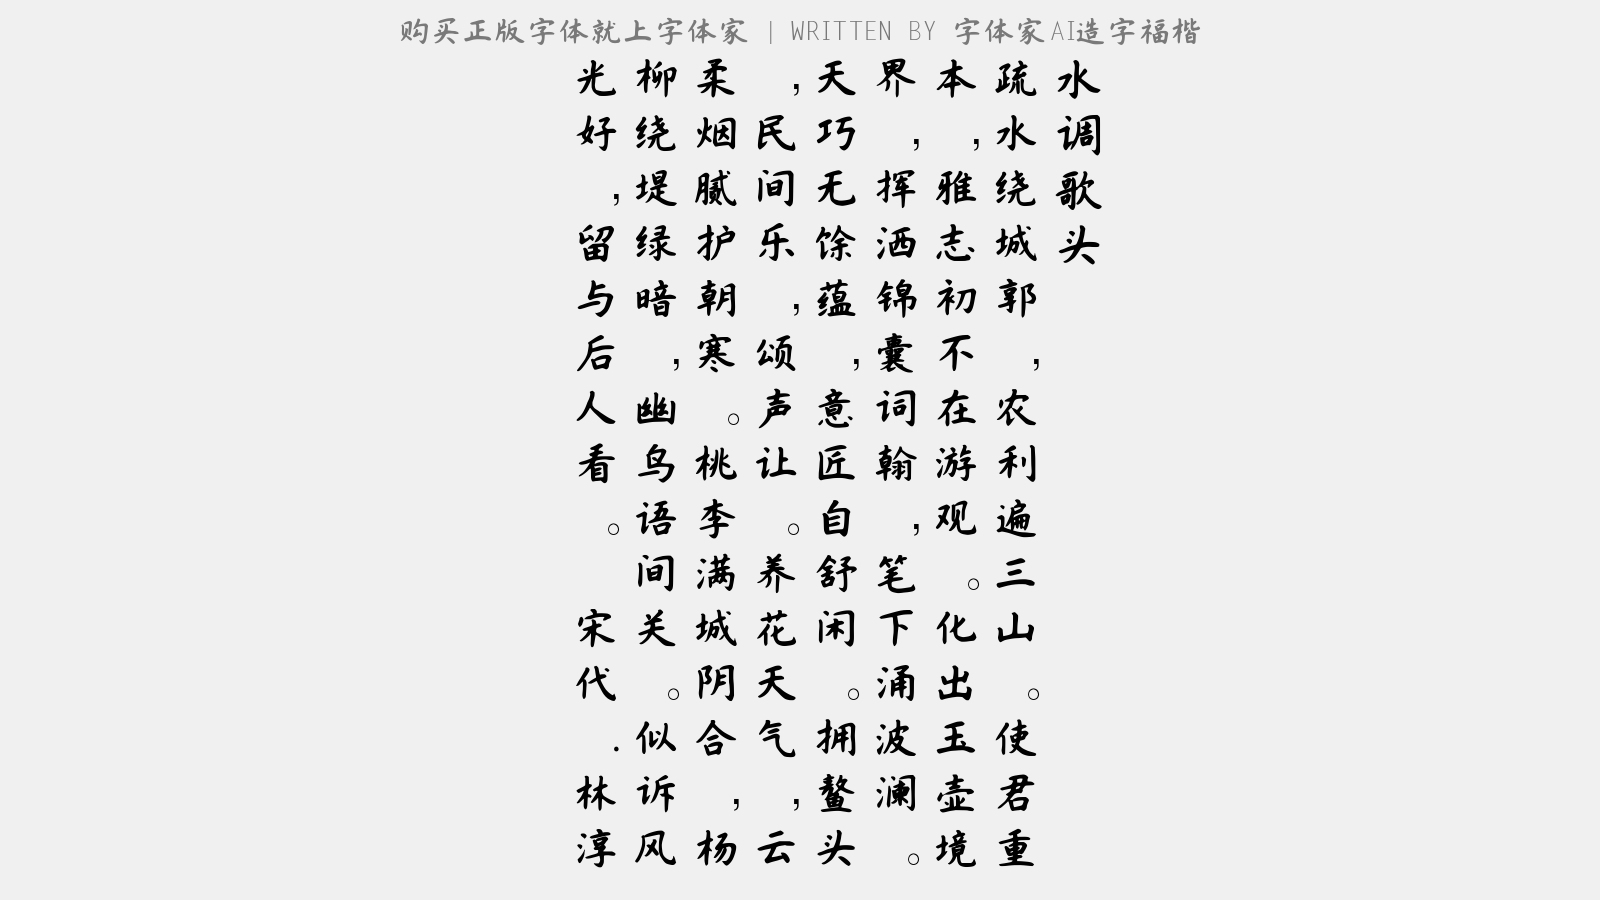 购买正版字体就上字体家 | WRITTEN BY 字体家AI造字福楷
水调歌头
疏水绕城郭,农利遍三山。使君重
本,雅志初不在游观。化出玉壶境
界,挥洒锦囊词翰,笔下涌波澜。
天巧无馀蕴,意匠自舒闲。拥鳌头
,民间乐,颂声让。养花天气,云
柔烟腻护朝寒。桃李满城阴合,杨
柳绕堤绿暗,幽鸟语间关。似诉风
光好,留与后人看。 宋代.林淳